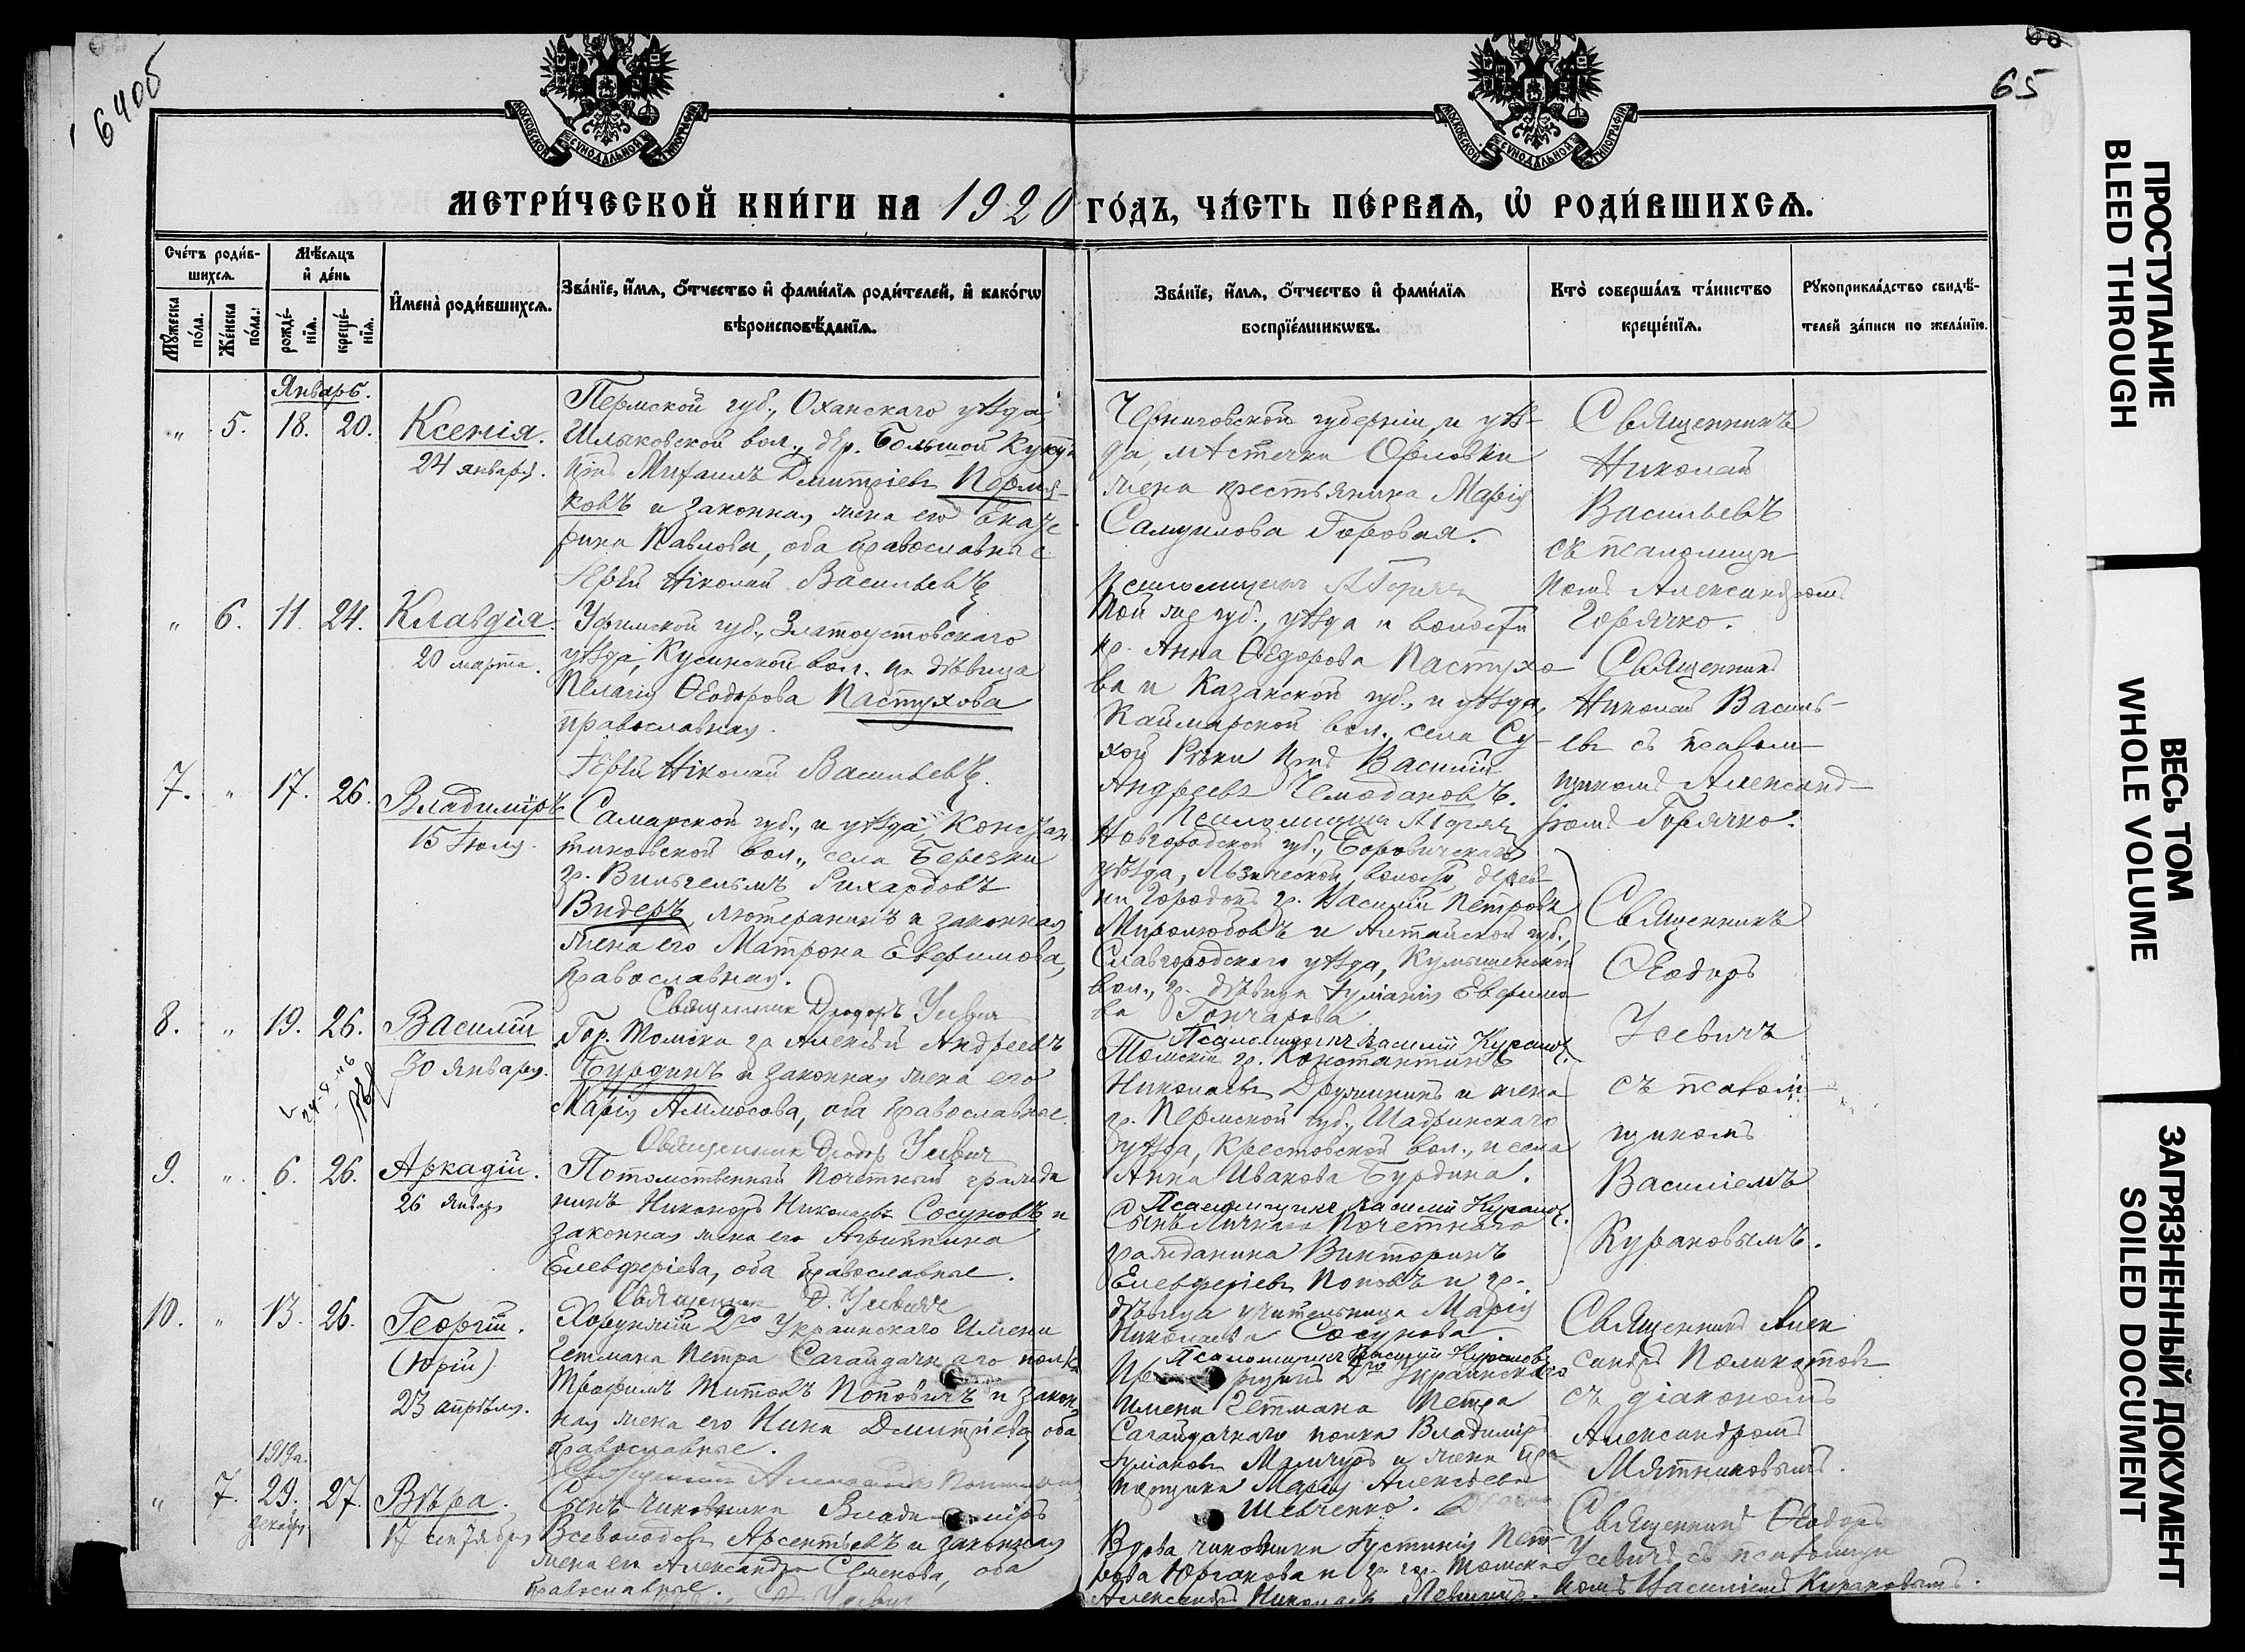 64об
65
МОСКОВСКОЙ СѴНОДАЛЬНОЙ ТИПОГРАФІИ
МОСКОВСКОЙ СѴНОДАЛЬНОЙ ТИПОГРАФІИ
МЕТРИ́ЧЕСКОЙ КНИ́ГИ НА 1920 ГО́ДЪ, ЧА́СТЬ ПЕ́РВАѦ, Ѡ҆ РОДИ́ВШИХСѦ.
Сче́тъ роди́в-
шихсѧ.
Мꙋ́жеска по́ла.
Же́нска по́ла.
Мѣ́сѧцъ
и҆ де́нь
рожде́-
нїѧ.
креще́-
нїѧ.
И҆мена̀ роди́вшихсѧ.
Зва́нїе, и҆́мѧ, ѻ҆́тчество и҆ фами́лїѧ роди́телей, и҆ како́гѡ
вѣроисповѣ́данїѧ.
Зва́нїе, и҆́мѧ, ѻ҆́тчество и҆ фами́лїѧ
воспрїе́мникѡвъ.
Кто̀ соверша́лъ та́инство
креще́нїѧ.
Рꙋкоприкла́дство свидѣ́-
телей за́писи по жела́нїю.
Январь.
" 5. 18. 20. Ксенія.
24 января.
Пермской губ., Оханскаго уѣзда,
Шлыковской вол., дер. Большой
Михаилъ Дмитріевъ Пермя-
ковъ и законная жена его Екате
рина Павлова, оба православные
Іерей Николай Васильевъ
Черниговской губерніи и уѣз-
да, мѣстечка Орловки
жена крестьянина Марія
Самуилова Горовая.
Псаломщикъ А Горячко
Священникъ
Николай
Васильевъ
съ псаломщи
комъ Александромъ
Горячко.
" 6. 11. 24. Клавдія.
20 марта.
Уфимской губ., Златоустовскаго
уѣзда, Кусинской вол. гр. дѣвица
Пелагія Ѳеодорова Пастухова
православная.
Іерей Николай Васильевъ.
Той же губ., уѣзда и волости
гр. Анна Ѳедорова Пастухо-
ва и Казанской губ., и уѣзда,
Каймарской вол., села Су-
хой Рѣки гр. Василій
Андреевъ Чемодановъ.
Псаломщикъ А Горяч
Священникъ
Николай Василь-
евъ съ псалом-
щикомъ Александ-
ромъ Горячко.
7. " 17. 26. Владиміръ
15 Іюля.
Самарской губ., и уѣзда, Констан
тиновской вол., села Березки
гр. Вильгельмъ Рихардовъ
Видеръ, лютеранинъ и законная
жена его Матрона Евфимова,
православная.
Священникъ Ѳеодоръ Усевичъ
Новгородской губ., Боровичскаго
уѣзда, волости, дерев
ни Городокъ гр. Василій Петровъ
Миролюбовъ и Алтайской губ.,
Славгородскаго уѣзда,
вол., гр. дѣвица Іуліанія Евфимо
ва Гончарова
Псаломщикъ Василій Курановъ.
Священникъ
Ѳеодоръ
Усевичъ
съ псалом-
щикомъ
Василіемъ
Курановымъ.
8. " 19. 26. Василій
30 января.
Гор. Томска гр. Алексѣй Андреевъ
Бурдинъ и законная жена его
Марія Аммосова, оба православные.
Священникъ Ѳеодоръ Усевичъ
Томскій гр. Константинъ
Николаевъ Дружининъ и жена
гр. Пермской губ., Шадринскаго
уѣзда, Крестовской вол., и села
Анна Иванова Бурдина.
Псаломщикъ Василій Курановъ.
9. " 6. 26. Аркадій.
26 Января
Потомственный почетный гражда
нинъ Никаноръ Николаевъ Сосуновъ и
законная жена его Агриппина
Елевферіева, оба православные.
Священникъ Ѳ. Усевичъ
Сынъ Личнаго Почетнаго
гражданина Викторинъ
Елевферіевъ Поповъ и гр.
дѣвица учительница Марія
Николаева Сосунова.
Псаломщикъ Василій Курановъ
10. " 13. 26. Георгій.
(Юрій)
23 апрѣля.
Хорунжій 2го Украинскаго Имени
Гетмана Петра Сагайдачнаго полка
Трофимъ Титовъ Поповичъ и закон
ная жена его Нина Дмитріева, оба
православные.
2го Украинскаго
имени Гетмана Петра
Сагайдачнаго полка Владиміръ
Іуліановъ и жена
Марія Алексѣева
Шевченко.
Священникъ Алек
сандръ Поликарповъ
съ діакономъ
Александромъ
Мятниковымъ.
" 7. 1919г. 29. декабря 27. Вѣра.
17 сентября
Сынъ чиновника Владиміръ
Всеволодовъ Арсентьевъ и законная
жена его Александра Семенова, оба
православные.
Ѳ. Усевичъ
Вдова чиновника Іустинія Пет-
рова Юрганова и гр. гор. Томска
Александръ Николаевъ
Священникъ Ѳеодоръ
Усевичъ съ псаломщи
комъ Василіемъ Курановымъ.
ПРОСТУПАНИЕ
BLEED THROUGH
ВЕСЬ ТОМ
WHOLE VOLUME
ЗАГРЯЗНЕННЫЙ ДОКУМЕНТ
SOILED DOCUMENT